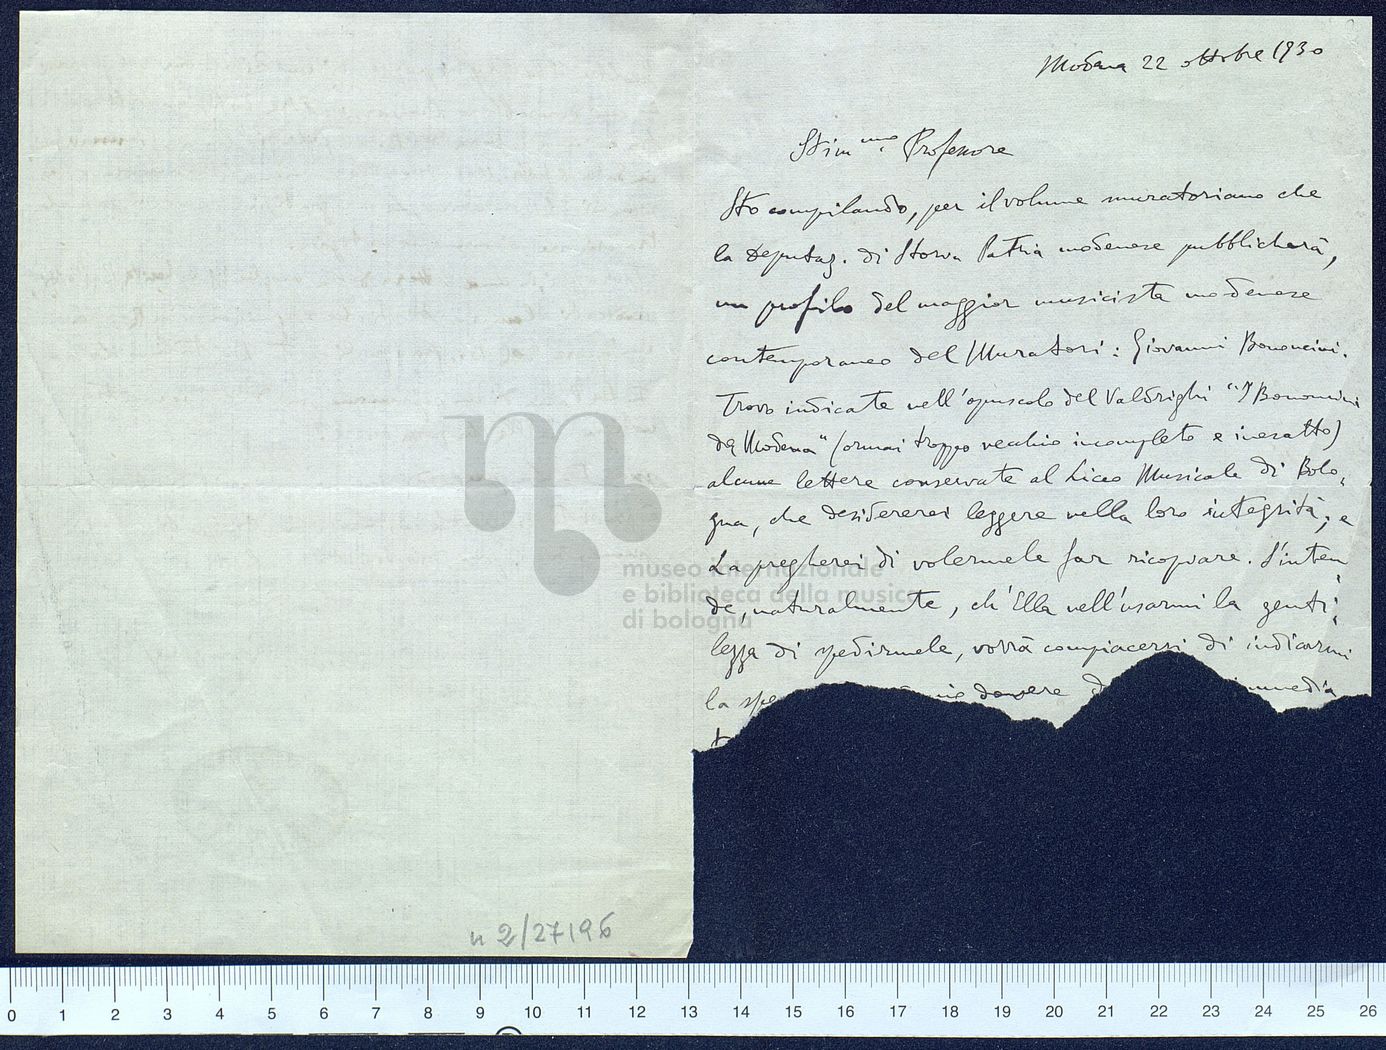 Modena 22 ottobre 1930
Stim.mo Professore
Sto compilando, per il volume muratoriano che
la Deputaz. di Storia Patria modenese pubblicherà,
un profilo del maggior musicista modenese
contemporaneo del Muratori: Giovanni Bononcini.
Trovo indicate nell'opuscolo del Valdrighi "I Bononcini
da Modena" (ormai troppo vecchio incompleto e inesatto)
alcune lettere conservate al Liceo Musicale di Bolo-
gna, che desidererei leggere nella loro integrità; e
La pregherei di volermele far ricopiare. S'inten
de, naturalmente, ch'Ella nell'usarmi la genti-
lezza di spedirmele, vorrà compiacersi di indicarmi
la spe mio dovere immedia
n 2/27196
museo internazionale
e biblioteca della musica
di bologna
0 1 2 3 4 5 6 7 8 9 10 11 12 13 14 15 16 17 18 19 20 21 22 23 24 25 26